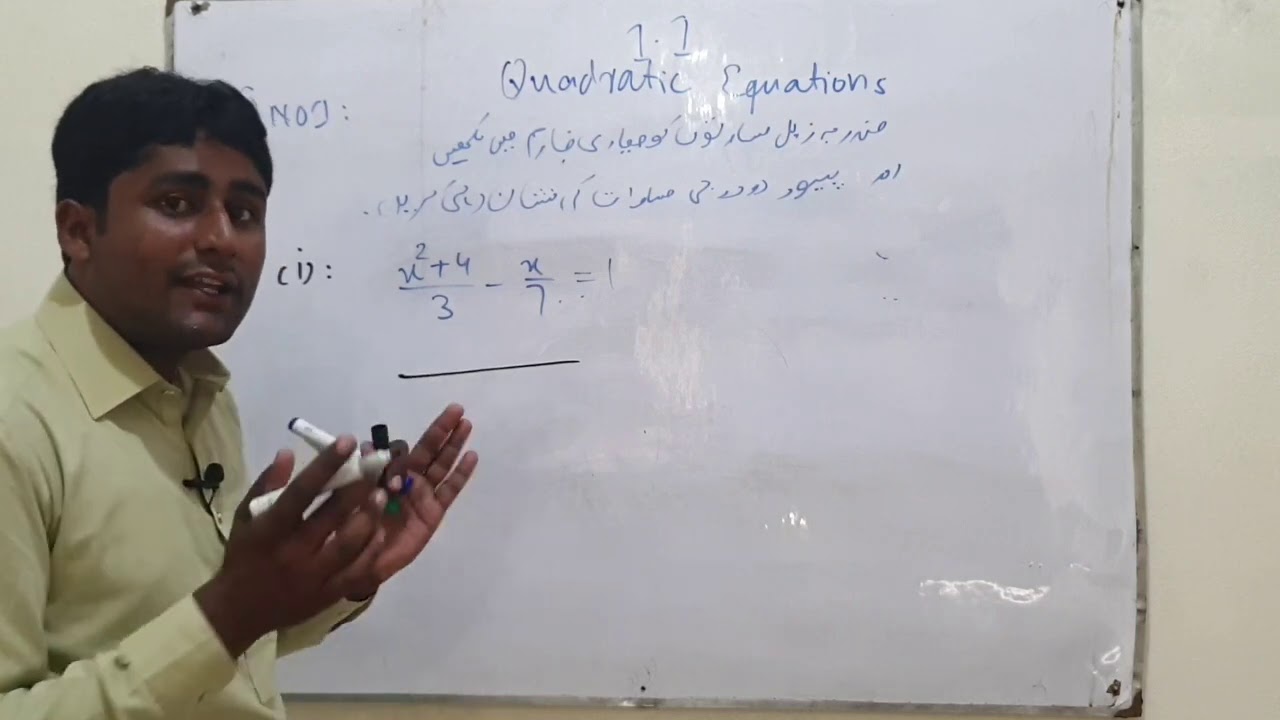 1.1
Quadratic Equations
NO1:
مندرجہ ذیل مساواتوں کو معیاری فارم میں لکھیں
اور پیور دو درجی مساوات کی نشان دہی کریں.
(i): x²+4/3 - x/7 = 1